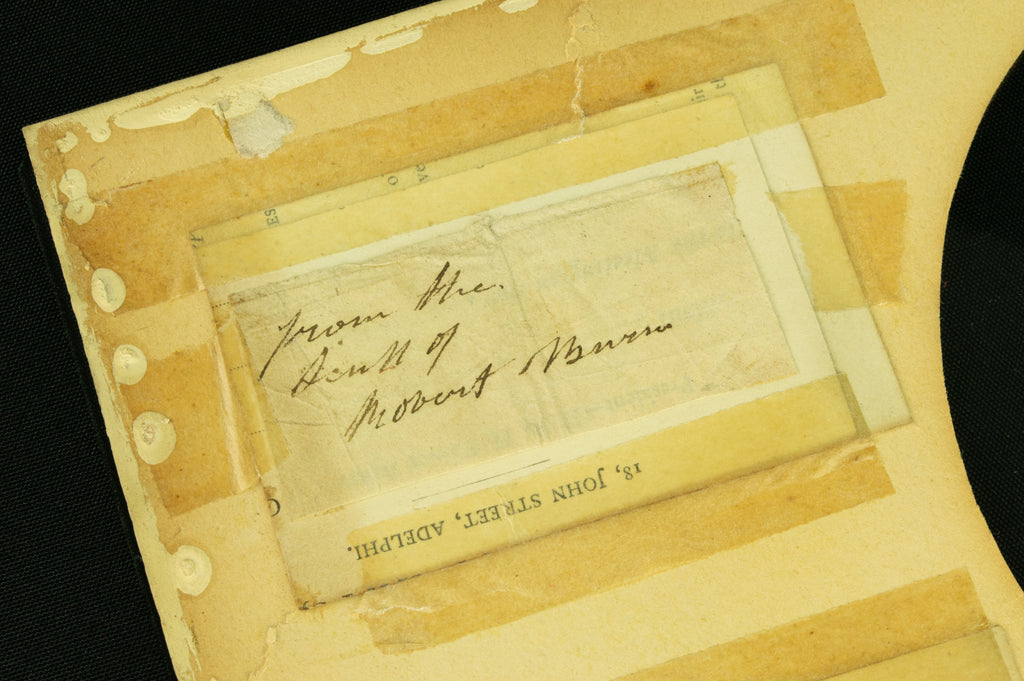 from the
Scull of
Robert Burns
18, JOHN STREET, ADELPHI.